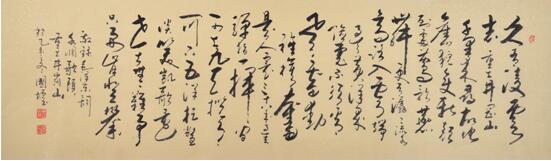 久有凌云
志重上井冈山
千里来寻故地
旧貌变新颜
到处莺歌
燕舞更有潺潺流水
高路入云端
过了黄洋界
险处不须看
风雷动
旌旗奋
是人寰三十八年过去
弹指一挥间
可上九天揽月
可下五洋捉鳖
谈笑凯歌还
世上无难事
只要肯登攀
毛泽东词
水调歌头
重上井岗山
乙未夏